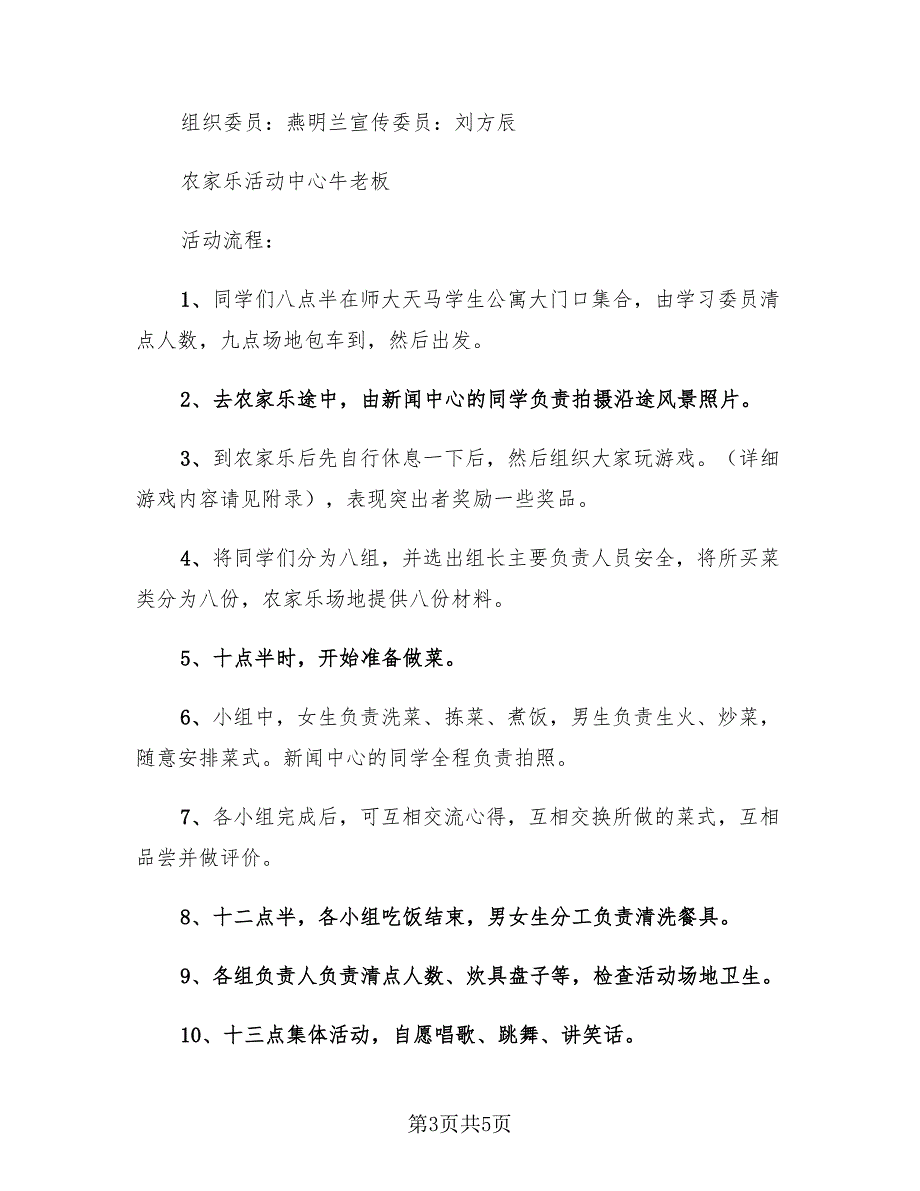 组织委员：燕明兰宣传委员：刘方辰
农家乐活动中心牛老板
活动流程：
1、同学们八点半在师大天马学生公寓大门口集合，由学习委员清
点人数，九点场地包车到，然后出发。
2、去农家乐途中，由新闻中心的同学负责拍摄沿途风景照片。
3、到农家乐后先自行休息一下后，然后组织大家玩游戏。（详细
游戏内容请见附录），表现突出者奖励一些奖品。
4、将同学们分为八组，并选出组长主要负责人员安全，将所买菜
类分为八份，农家乐场地提供八份材料。
5、十点半时，开始准备做菜。
6、小组中，女生负责洗菜、拣菜、煮饭，男生负责生火、炒菜，
随意安排菜式。新闻中心的同学全程负责拍照。
7、各小组完成后，可互相交流心得，互相交换所做的菜式，互相
品尝并做评价。
8、十二点半，各小组吃饭结束，男女生分工负责清洗餐具。
9、各组负责人负责清点人数、炊具盘子等，检查活动场地卫生。
10、十三点集体活动，自愿唱歌、跳舞、讲笑话。
第3页共5页